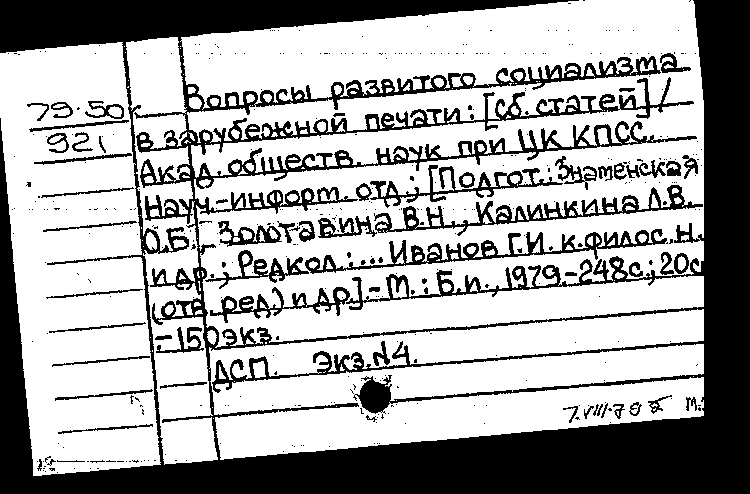 79.50к
921
Вопросы развитого социализма
в зарубежной печати: [сб. статей] /
Акад. обществ. наук при ЦК КПСС.
Науч.-информ. отд.; [Подгот.: Знаменская
О.Б., Золотавина В.Н., Калинкина Л.В.
и др.; Редкол.: ... Иванов Г.И. к.филос.н.
(отв. ред.) и др.].- М.: Б.и., 1979.-248с.; 20с
- 150экз.
ДСП. Экз.N4.